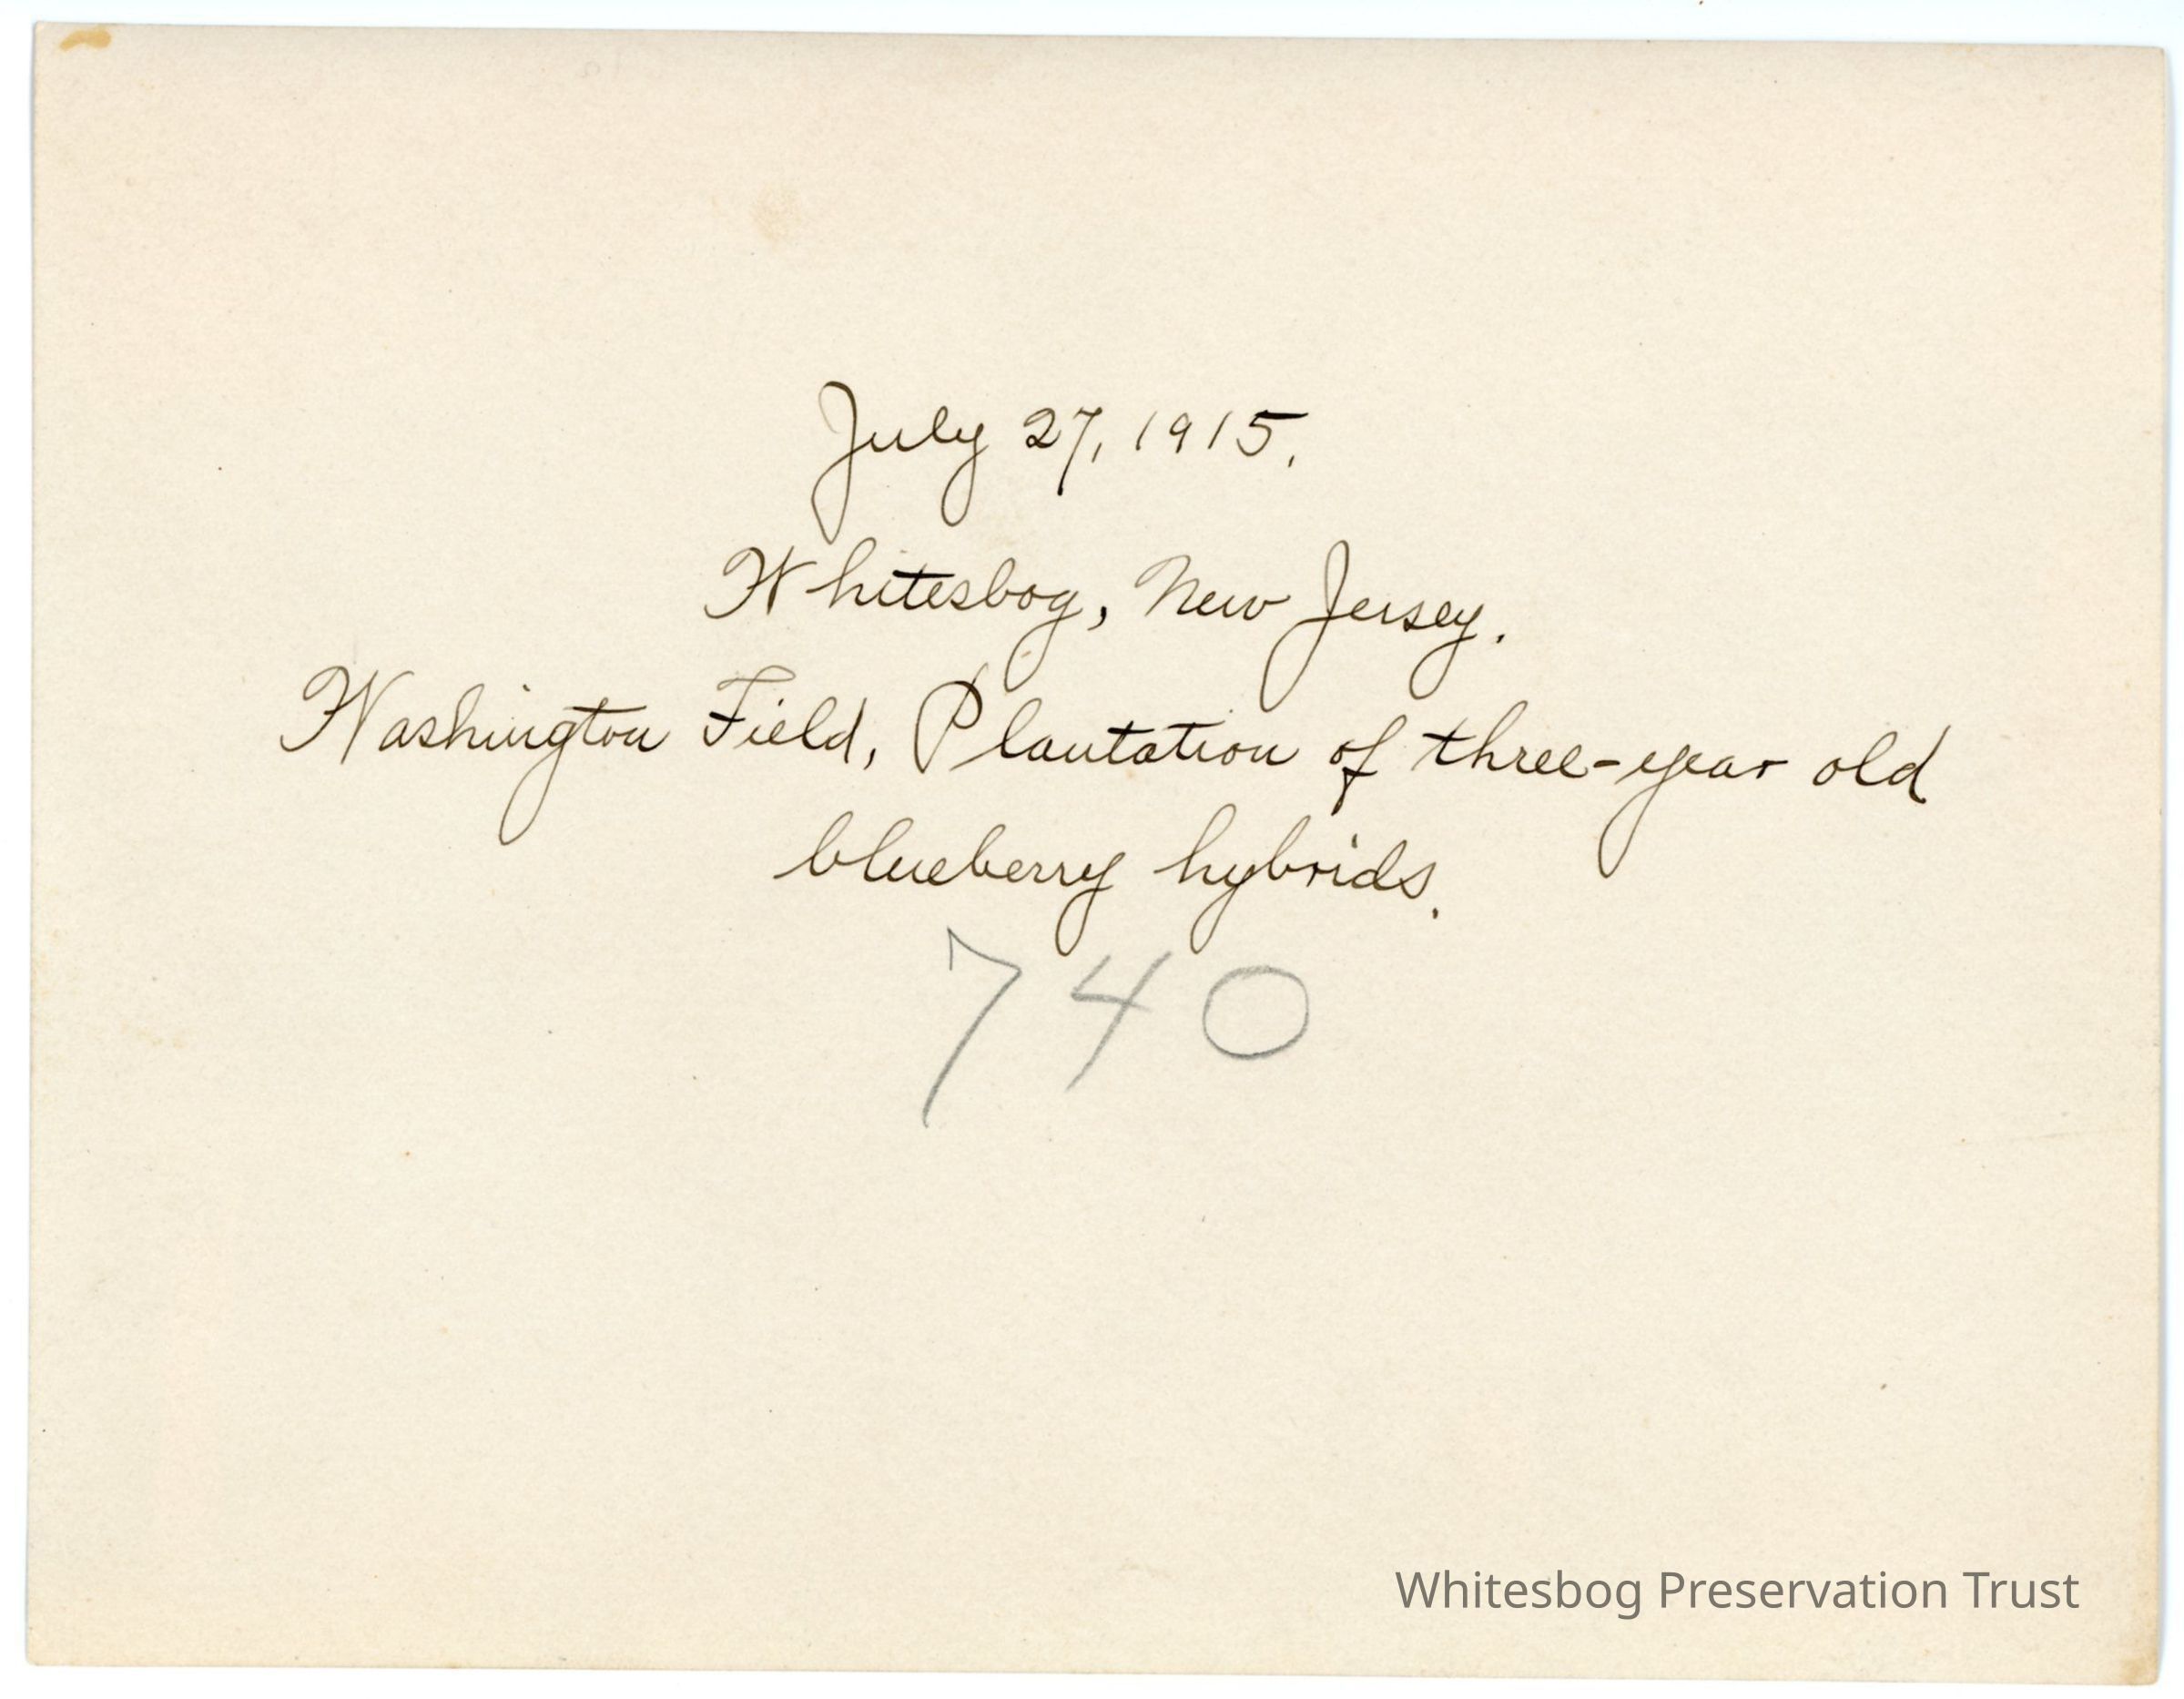 July 27, 1915.
Whitesbog, New Jersey.
Washington Field, Plantation of three-year old
blueberry hybrids.
740
Whitesbog Preservation Trust